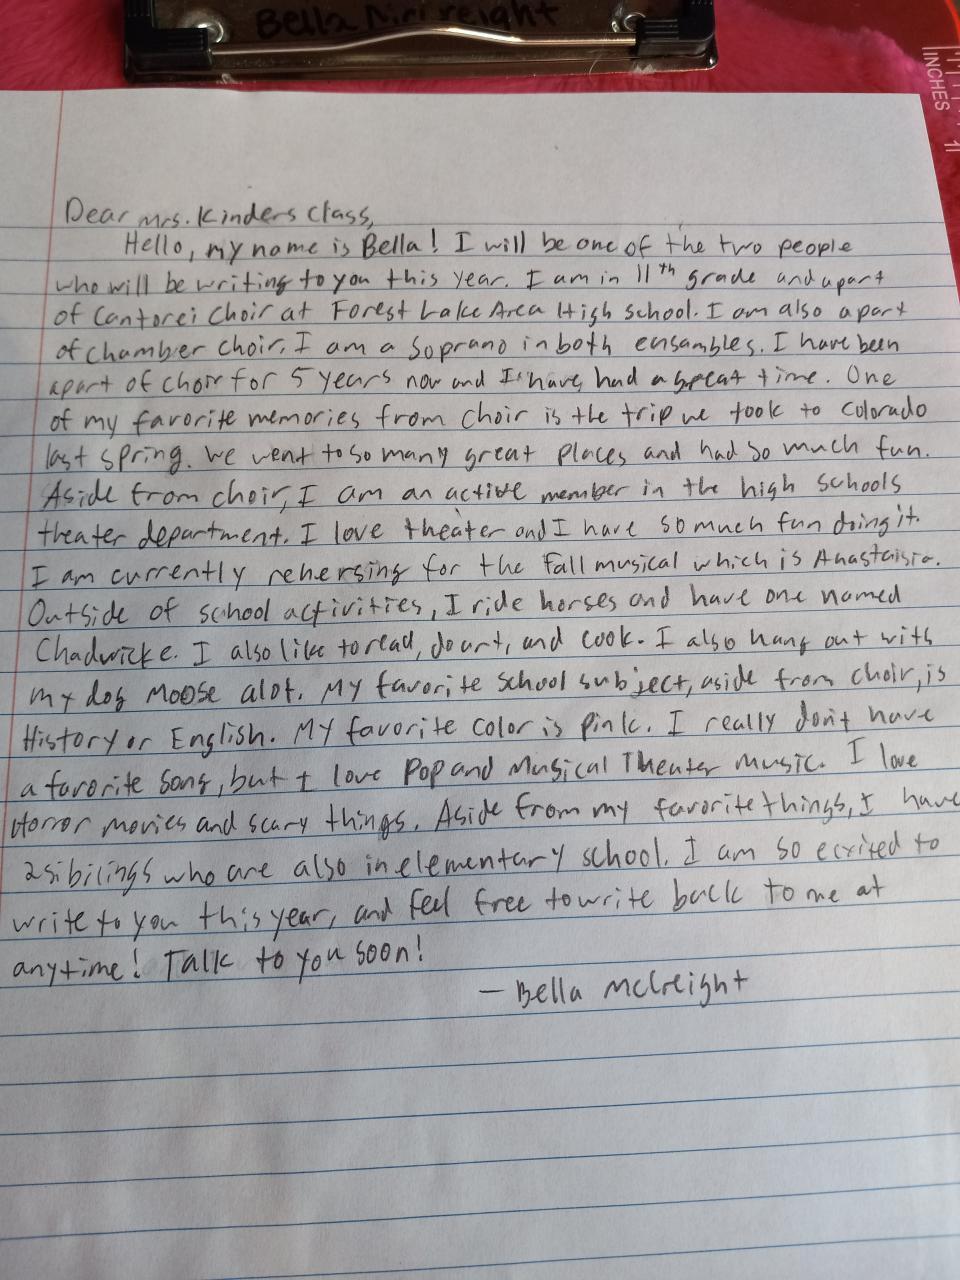 Bella
INCHES
1
Dear Mrs. Kinders Class,
Hello, my name is Bella! I will be one of the two people
who will be writing to you this year. I am in 11th grade and apart
of Cantorei Choir at Forest Lake Area High school. I am also apart
of chamber choir. I am a Soprano in both ensambles. I have been
apart of choir for 5 years now and I have had a great time. One
of my favorite memories from choir is the trip we took to Colorado
last spring. We went to so many great places and had so much fun.
Aside from choir, I am an active member in the high schools
theater department. I love theater and I have so much fun doing it.
I am currently rehersing for the fall musical which is Anastaisia.
Outside of school activities, I ride horses and have one named
Chadwicke. I also like to read, do art, and cook. I also hang out with
my dog Moose alot. My favorite school subject, aside from choir, is
History or English. My favorite color is pink. I really don't have
a favorite song, but I love Pop and Musical Theater music. I love
Horror movies and scary things. Aside from my favorite things, I have
2 sibilings who are also in elementary school. I am so ecxited to
write to you this year, and feel free to write back to me at
anytime! Talk to you soon!
— Bella McCreight